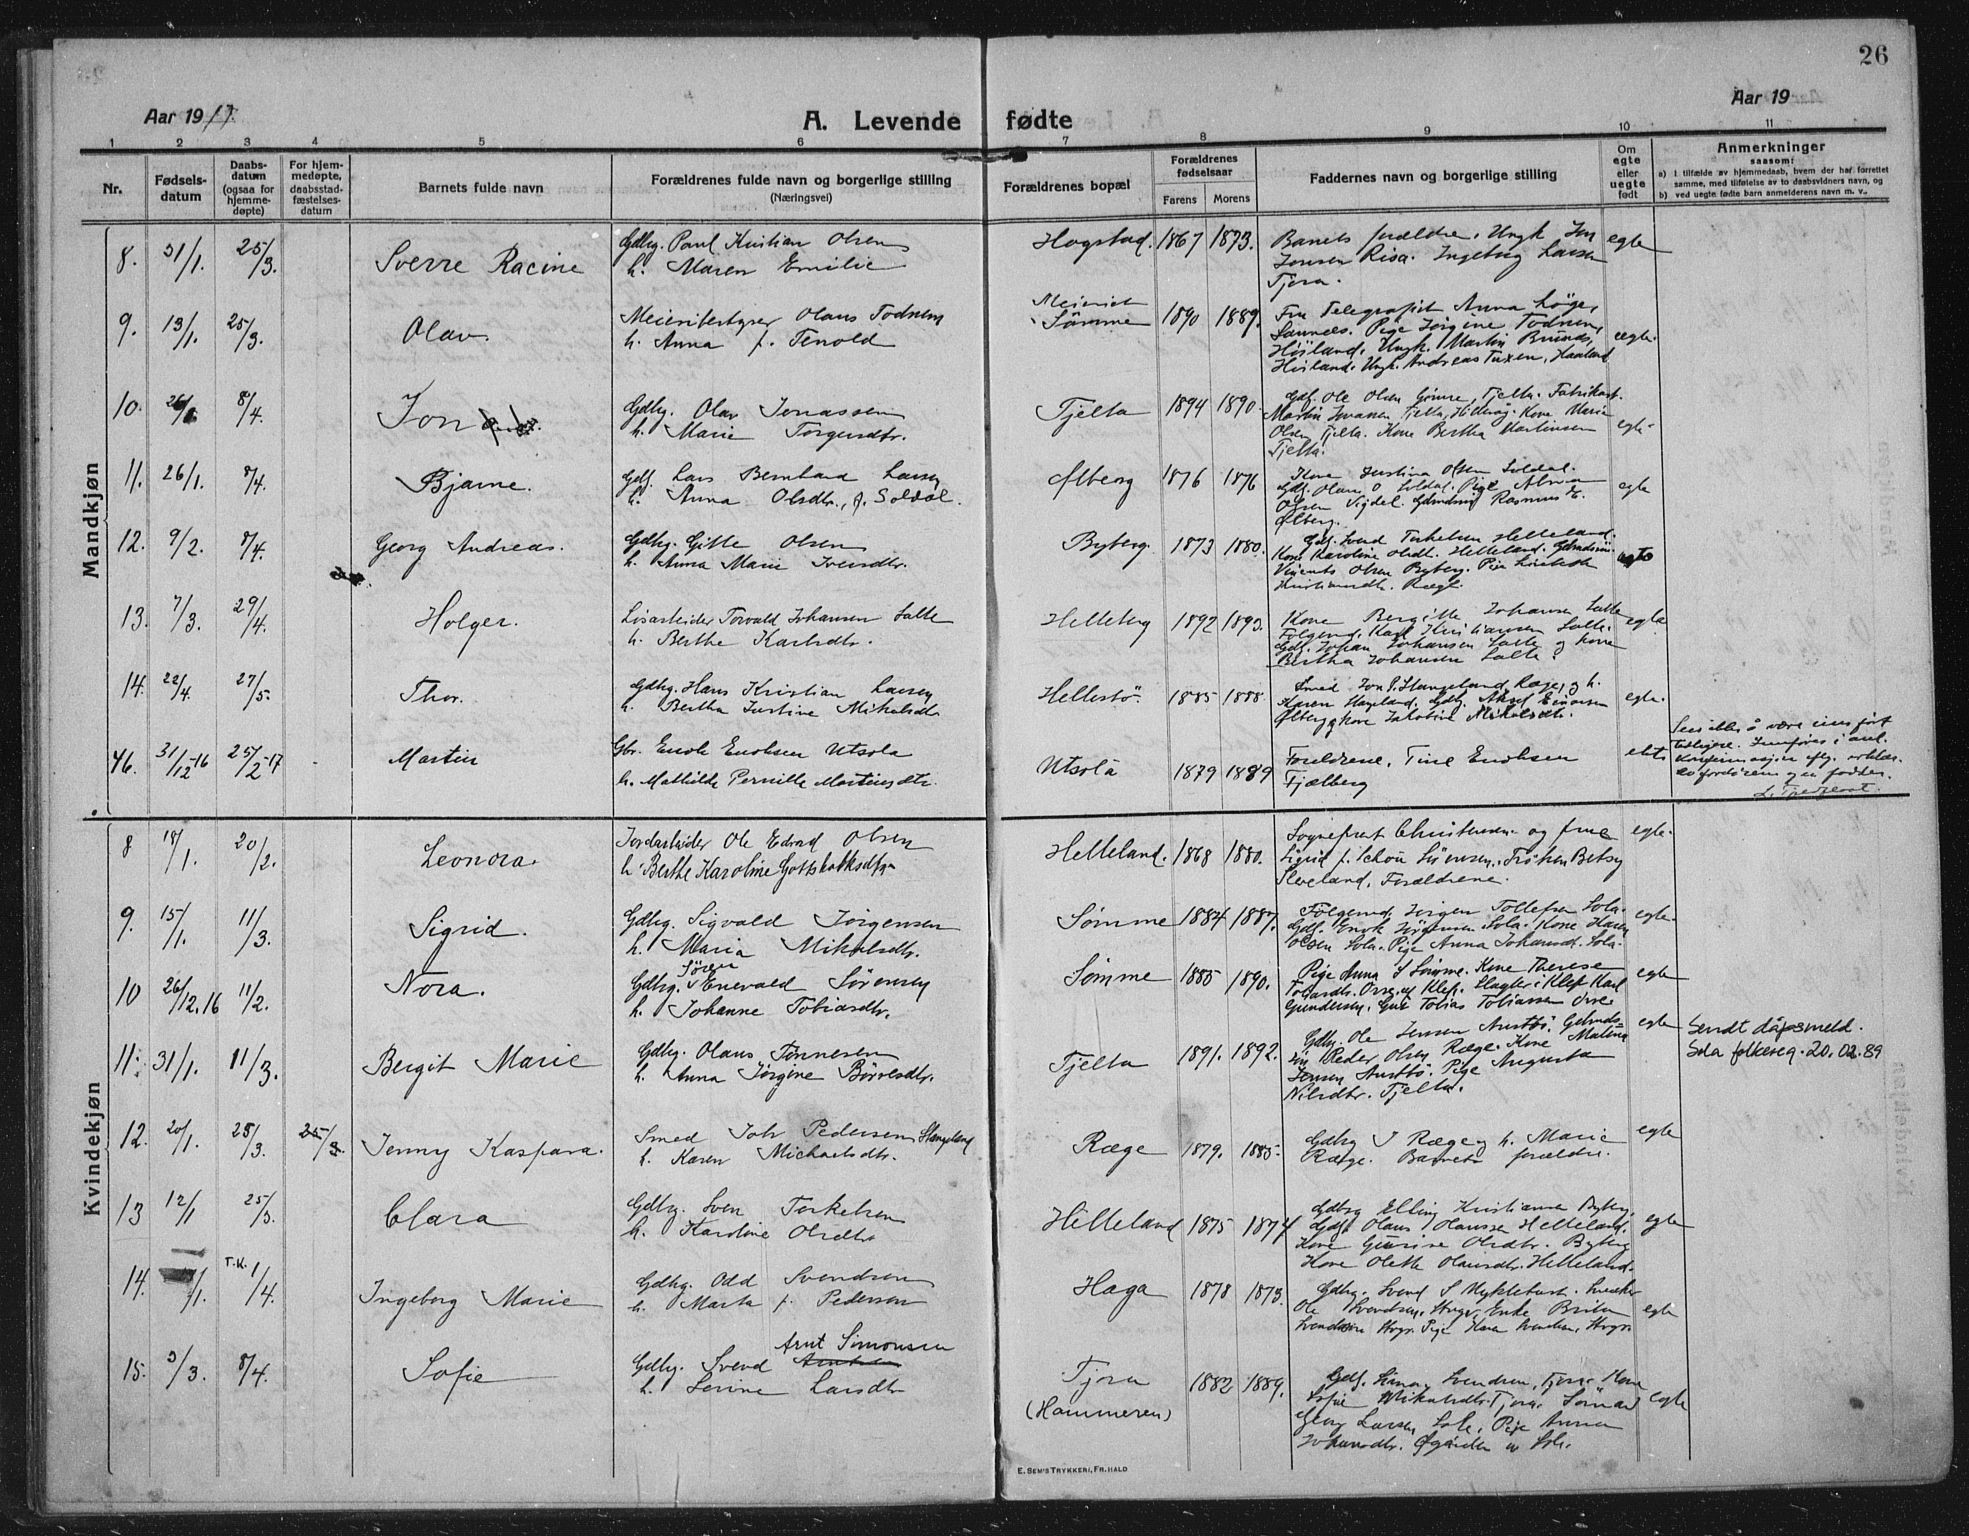 26
Aar 1917
A. Levende fødte
Aar 19
1 2 3 4 5 6 7 8 9 10 11
Nr.
Fødsels-
datum
Daabs-
datum
(ogsaa for
hjemme-
døpte)
For hjem-
medøpte,
daabsstad-
fæstelses-
datum
Barnets fulde navn
Forældrenes fulde navn og borgerlige stilling
(Næringsvei)
Forældrenes bopæl
Forældrenes
fødselsaar
Farens Morens
Faddernes navn og borgerlige stilling
Om
egte
eller
uegte
født
Anmerkninger
saasom:
a) I tilfælde av hjemmedaab, hvem der har forrettet
samme, med tilføielse av to daabsvidners navn, og
b) ved uegte fødte barn anmelderens navn m. v.
Mandkjøn
8. 31/1. 25/3. Sverre Racine
Gdbrg. Paul Kristian Olsen
h. Maren Emilie
Hogstad. 1867 1873.
Barnets forældre. Ungk. Jon
Jonsen Risa. Ingeborg Larsen
Tjora.
egte
9. 13/1. 25/3. Olav.
Meieribestyrer Olaus Todnem
h. Anna f. Tenold
Meieriet
Sømme 1890 1889.
Fru Telegrafist Anna
Sannes. Pige Jørgine Todnem,
Høiland. Ungk. Martin
Høiland. Ungk. Andreas Tuxen, Haaland
egte.
10. 26/1 8/4. Jon
Gdbrg. Olav Jonassen
h. Marie Torgersdtr.
Tjelta 1894 1890.
Gdf. Ole Olsen Tjelta. Fabrikarb.
Martin Jonassen Tjelta, Kone Marie
Olsen Tjelta. Kone Bertha Martinsen
Tjelta.
egte
11. 26/1. 8/4. Bjarne.
Gdf. Lars Bernhard Larsen
h. Anna Olsdtr., f. Soldal.
Ølberg 1876 1876
Kone Justina Olsen Soldal.
Gdf. Olaus O Soldal. Pige
Olsen Vigdel. Rasmus
Ølberg.
egte
12. 9/2. 8/4. Georg Andreas.
Gdbrg. Gitle Olsen
h. Anna Marie Iversdtr.
Byberg. 1873 1880.
Gdf. Svend Torkelsen Helleland.
Kone Karoline Olsdt. Helleland.
Olsen Byberg. Pige
Ræge.
egte
13. 7/3. 29/4. Holger.
Løsarbeider Torvald Johansen Salte
h. Berthe Karlsdtr.
Helleberg 1892 1893.
Kone Bergitte Johansen Salte
Følgemd. Karl Kristiansen Salte.
Gdf. Johan Johansen Salte og kone
Bertha Johansen Salte.
egte
14. 22/4. 27/5. Thor.
Gdbrg. Hans Kristian Larsen
h. Bertha Justine Mikalsdtr
Hellestö. 1885 1888.
Smed Jon P. Stangeland, Ræge, og h.
Karen Stangeland. Gdbg.
Ølberg og kone Jakobine Mikalsdtr.
egte.
46. 31/12-16 25/2-17 Martin
Gbr. Enok Enoksen Utsola
h. Mathilde Pernille Martinsdtr.
Utsola 1879 1889
Foreldrene, Tine Enoksen
Fjælberg
ekte
Sees ikke å være innført
tidligere. Innføres i anl.
konfirmasjon eftg. erklæ-
Kvindekjøn
8 18/1. 20/2. Leonora.
Jordarbeider Ole Edvard Olsen
h. Berthe Karoline Gottskalksdtr
Helleland. 1868 1880.
Sogneprest Christensen og frue
Sigrid f. Schou Sørensen. Frøken Betsy
Sleveland, Forældrene.
egte.
9. 15/1. 11/3. Sigrid.
Gdbrg. Sigvald Jørgensen
h. Maria Mikalsdtr.
Sømme 1884 1887.
Følgemd. Jørgen Tollefsen Sola.
Gdf. Enok Jørgensen Sola. Kone Karen
Olsen Sola. Pige Anna Johansd. Sola.
egte.
10 26/12.16 11/2. Nora.
Sören
Gdbrg. Enevald Sørensen
h. Johanne Tobiasdtr.
Sømme 1885 1890.
Pige Anna S Sømme. Kone Therese
Tobiasdtr. Orre, af Klep. Slagter i Klep Karl
Gundersen. Gut Tobias Tobiassen Orre
egte
11. 31/1. 11/3. Bergit Marie
Gdbrg. Olaus Tønnesen
h. Anna Jørgine Børresdtr.
Tjelta 1891. 1892.
Gdbrg. Ole Jensen Austbö. Gdmds
søn Peder Olsen Ræge. Kone Malena
Jensen Austbö. Pige Augusta
Nilsdtr. Tjelta.
egte
Sendt dåpsmeld.
Sola folkereg. 20.02.89
12. 20/1. 25/3. 25/3. Jenny Kaspara.
Smed Joh Pedersen Stangeland
h. Karen Michaelsdtr.
Ræge 1879. 1885.
Gdbrg J Ræge og h. Marie
Ræge. Barnets forældre.
egte
13 12/1 25/3. Clara
Gdbrg. Sven Torkelsen
h. Karoline Olsdtr
Helleland 1875 1874
Gdbrg Elling Kristiansen Byberg.
Gdf. Olaus Olaussen Helleland.
Kone Gurine Olsdtr. Byberg
Kone Olette Olausdtr. Helleland.
egte
14. /1. T.K. 1/4. Ingeborg Marie
Gdbrg. Odd Svendsen
h. Marta f. Pedersen
Haga 1878 1873.
Gdbrg. Svend S Myklebust. Snekker
Ole Svendsen, Haga, Enke
Svendsen Haga. Pige Svendsen, Haga.
egte
15. 3/3. 8/4. Sofie
Arnt Simonsen
Gdbrg. Svend
h. Serine Larsdtr
Tjora
(Hammeren)
1882 1889.
Gdf. Simon Svendsen, Tjora. Kone
Sofie Mikalsdtr. Tjora. Sømand
Georg Larsen Sola. Pige Anna
Johansdtr. Øgarden av Sola.
egte
E. SEM'S TRYKKERI, FR.HALD